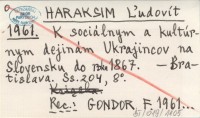 HARAKSIM Ľudovít
1961. K sociálnym a kultúr-
nym dejinám Ukrajincov na
Slovensku do roku 1867. – Bra-
tislava. Ss. 204, 8°.
Rec.: GONDOR, F. 1961...